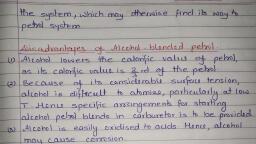 the system, which may otherwise find its way to
petrol system
Disadvantages of Alcohol-blended petrol
(1) Alcohol lowers the calorific value of petrol,
as its calorific value is 2/3 rd of the petrol
(2) Because of its considerable surface tension,
alcohol is difficult to atomise, particularly at low
T. Hence specific arrangements for starting
alcohol petrol blends in carburetor is to be provided
(3) Alcohol is easily oxidised to acids. Hence, alcohol
may cause corrosion.